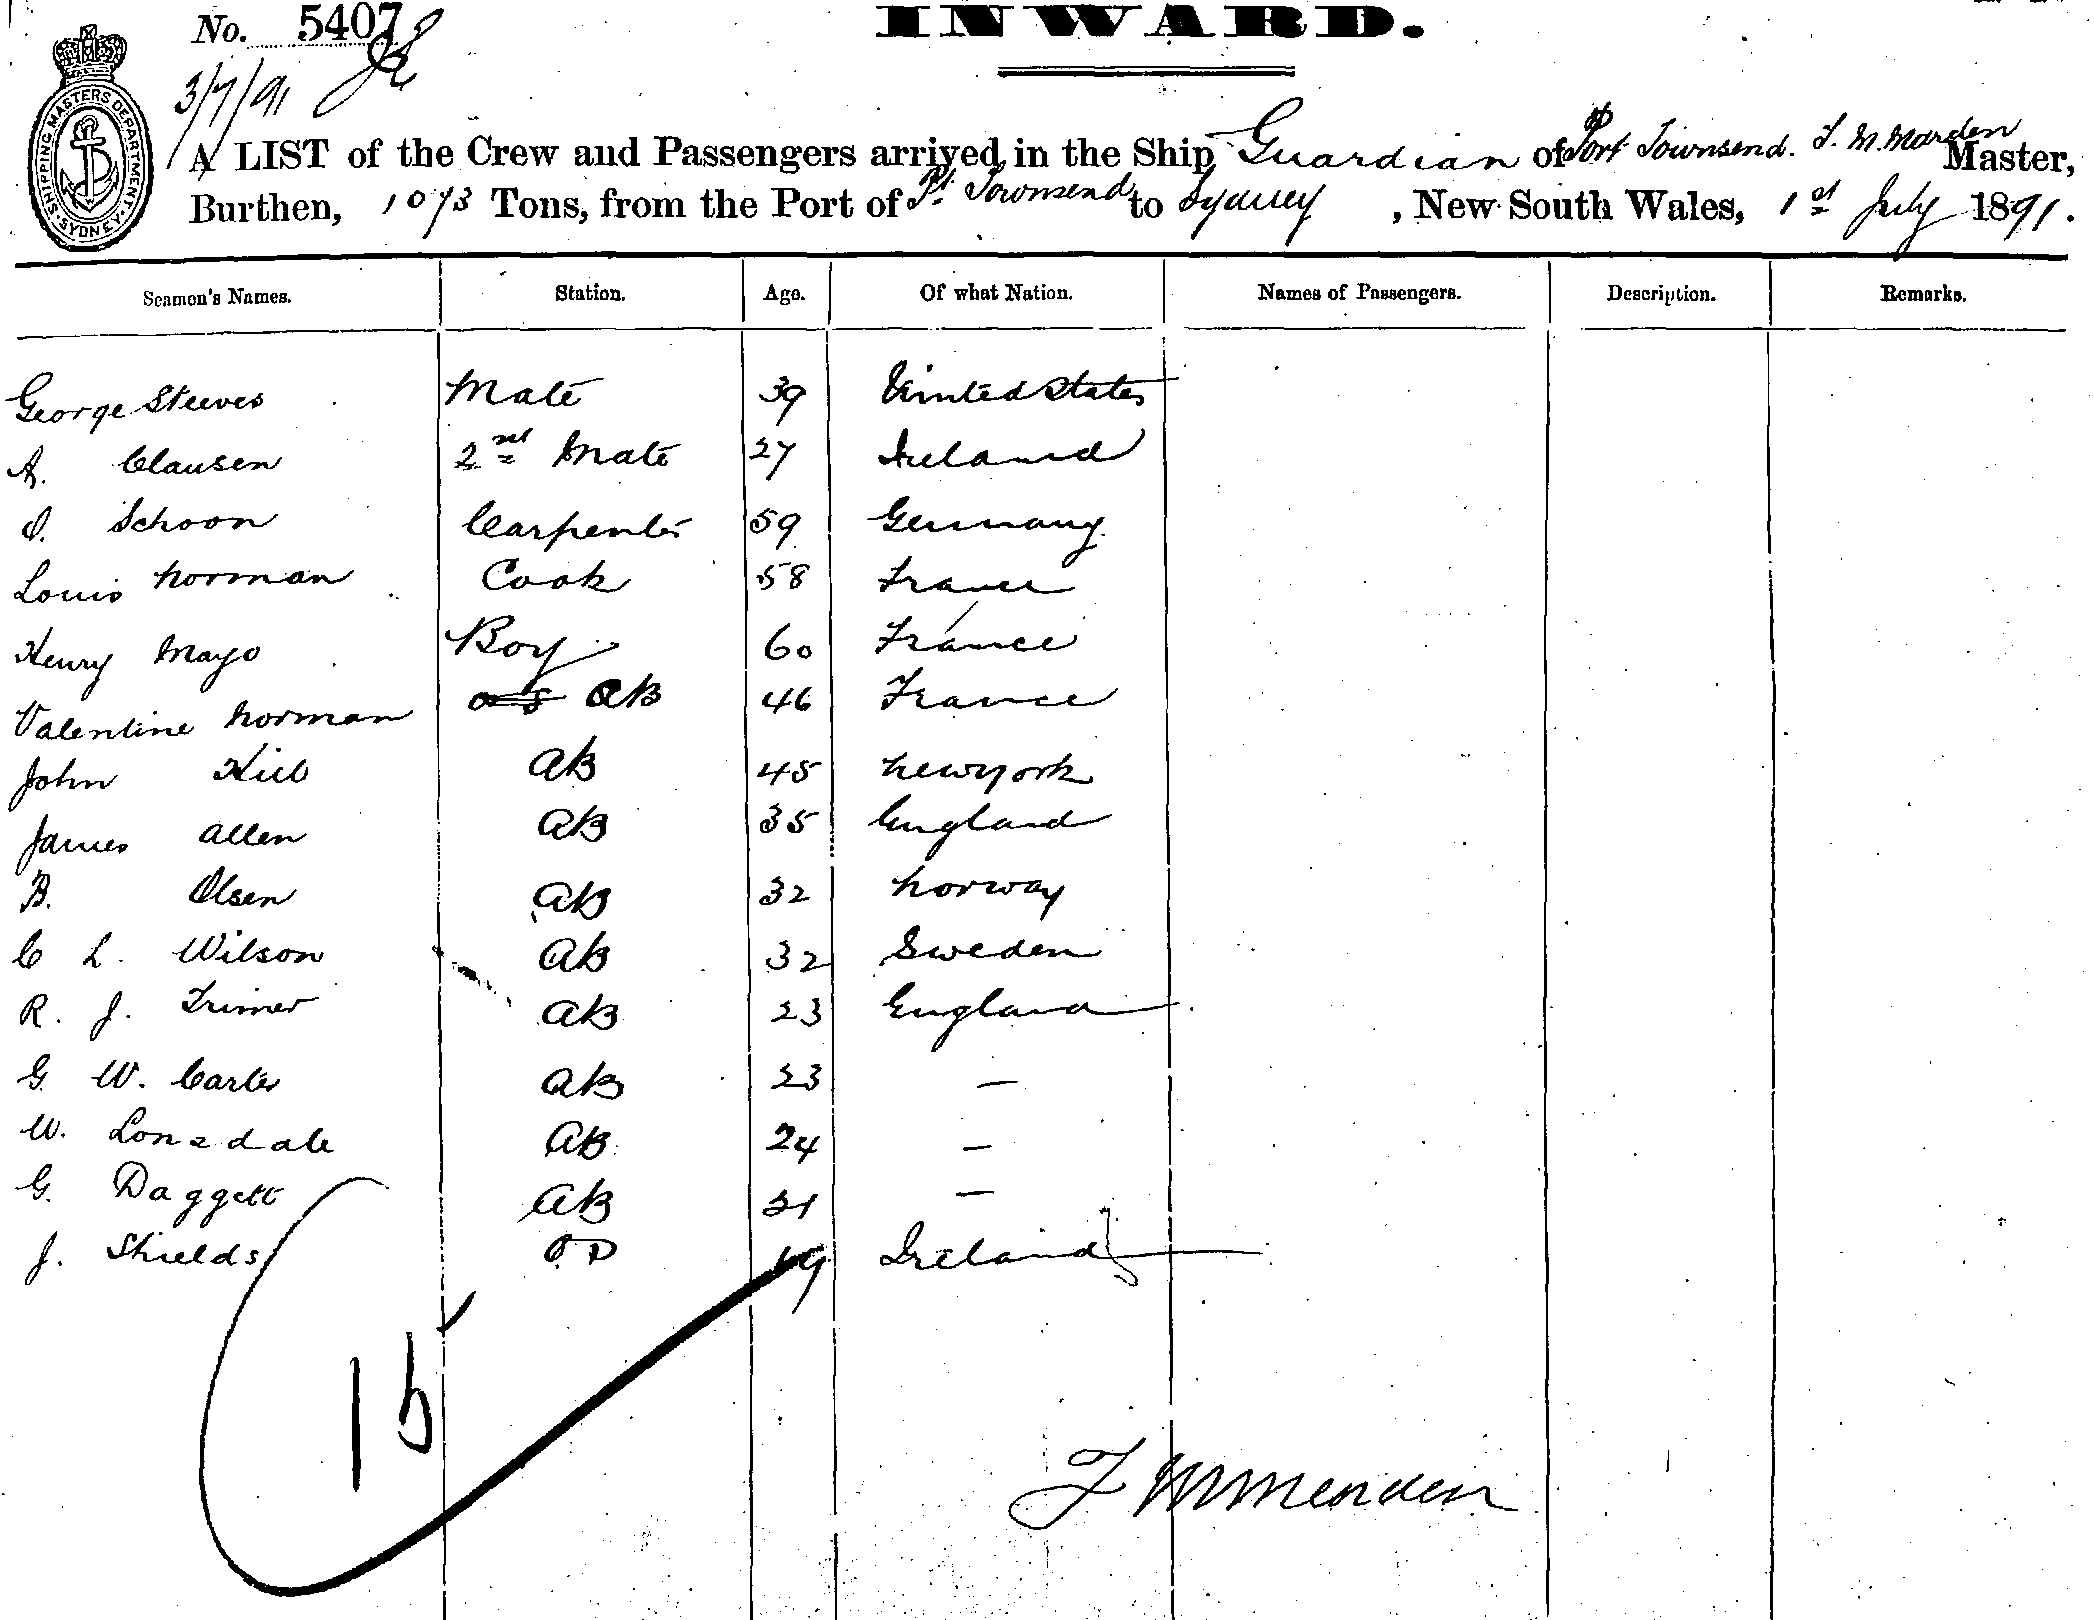 No. 5407
INWARD.
3/7/91
SHIPPING MASTERS DEPARTMENT SYDNEY
A LIST of the Crew and Passengers arrived in the Ship Guardian of Port Townsend. F. M. Marden Master,
Burthen, 1073 Tons, from the Port of Pt. Townsend to Sydney, New South Wales, 1st July 1891.
Seamen's Names. Station. Age. Of what Nation. Names of Passengers. Description. Remarks.
George Steeves Mate 39 United States
A. Clausen 2nd Mate 27 Ireland
O. Schoon Carpenter 59 Germany
Louis Norman Cook 58 France
Henry Mayo Boy 60 France
Valentine Norman os AB 46 France
John AB 45 Newyork
James Allen AB 35 England
B. Olsen AB 32 Norway
C L. Wilson AB 32 Sweden
R. J. Trimer AB 23 England
G W. Carter AB 23 —
W. Lonsdale AB 24 —
G. Daggett AB 21 —
J. Shields OD 19 Ireland
15
F M Marden